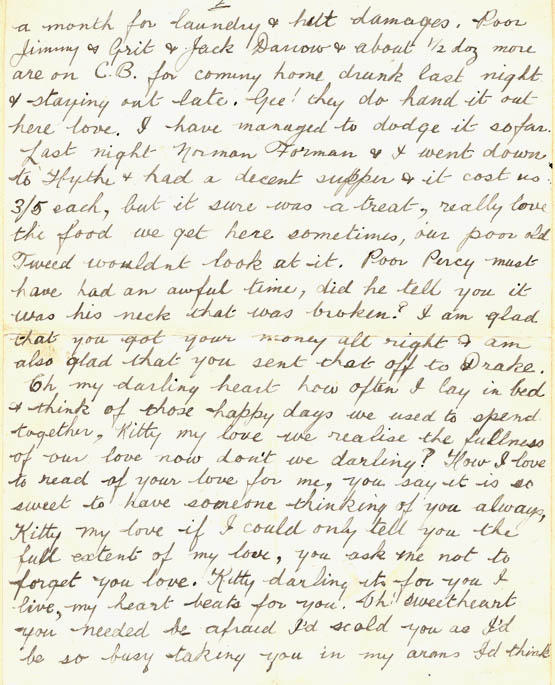 2
a month for laundry & hut damages. Poor
Jimmy & Grit & Jack Darrow & about 1/2 doz more
are on C.B. for coming home drunk last night
& staying out late. Gee! they do hand it out
here love. I have managed to dodge it so far.
Last night Norman Forman & I went down
to Hythe & had a decent supper & it cost us
3/5 each, but it sure was a treat, really love
the food we get here sometimes, our poor old
Tweed wouldnt look at it. Poor Percy must
have had an awful time, did he tell you it
was his neck that was broken? I am glad
that you got your money all right & am
also glad that you sent that off to Drake.
Oh my darling heart how often I lay in bed
& think of those happy days we used to spend
together, Kitty my love we realise the fullness
of our love now don't we darling? How I love
to read of your love for me, you say it is so
sweet to have someone thinking of you always,
Kitty my love if I could only tell you the
full extent of my love, you ask me not to
forget you love. Kitty darling its for you I
live, my heart beats for you. Oh! sweetheart
you needed be afraid I'd scold you as I'd
be so busy taking you in my arms I'd think